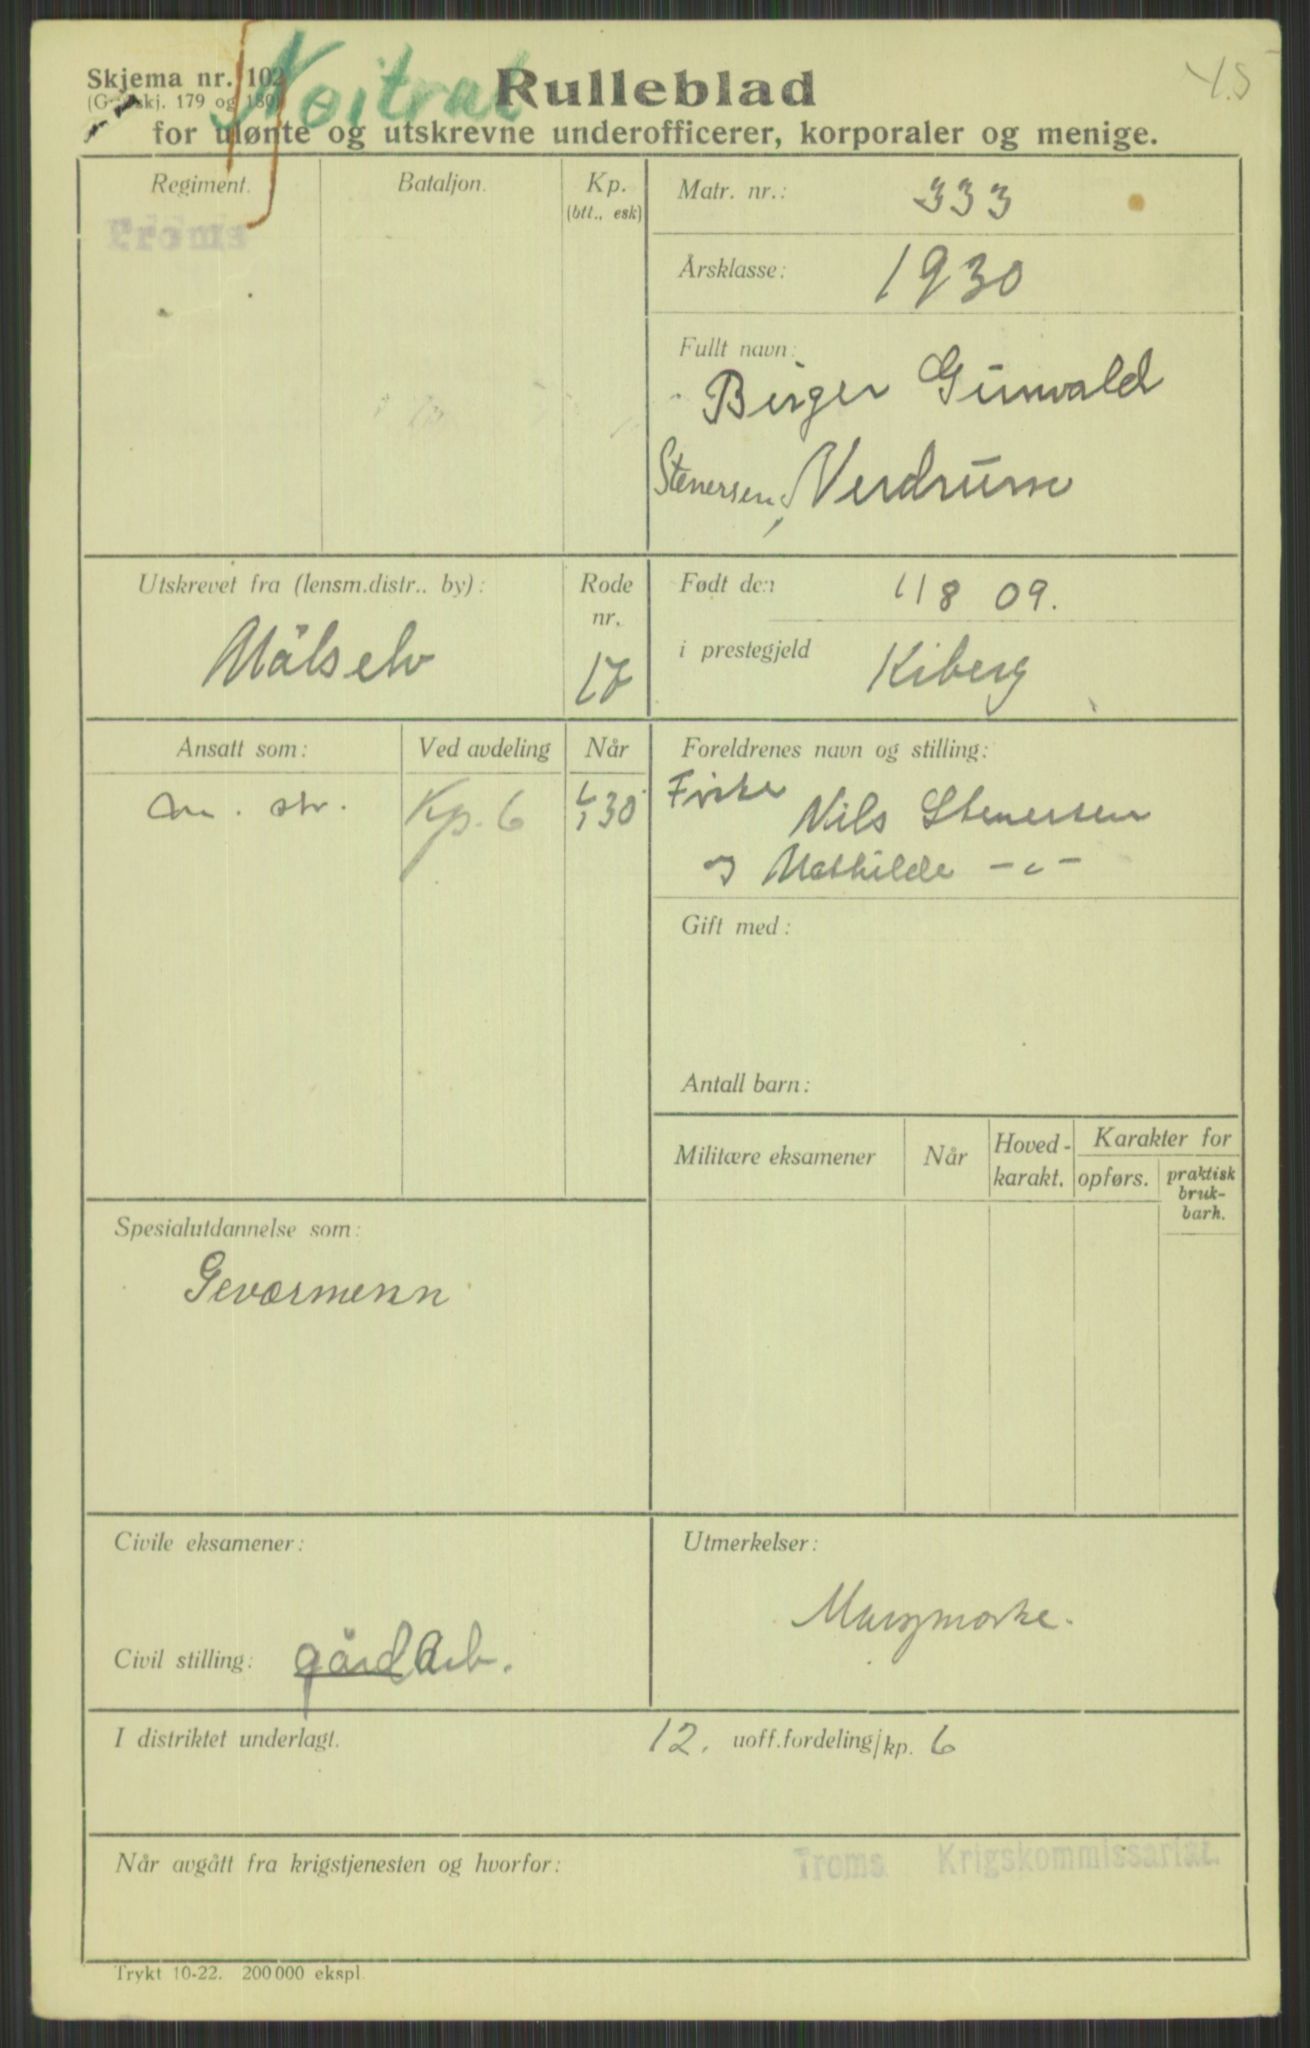 Skjema nr. 102
Nøitral
Rulleblad
45
(Gr. skj. 179 og 180)
for ulønte og utskrevne underofficerer, korporaler og menige.
Regiment. Bataljon. Kp.
(btt., esk)
Troms
Matr. nr.: 333
Årsklasse: 1930
Fullt navn:
Birger Gunvald
Stenersen, Nerdrum
Utskrevet fra (lensm.distr.. by): Rode nr.
Målselv 17
Født den 11 8 09.
i prestegjeld Kiberg
Ansatt som: Ved avdeling Når
Kp. 6 30
Foreldrenes navn og stilling:
Fisker
Nils Stenersen
og Mathilde -"-
Gift med:
Antall barn:
Militære eksamener Når Hoved-karakt. Karakter for
opførs. praktisk
bruk-
barh.
Spesialutdannelse som:
Geværmenn
Civile eksamener:
Civil stilling: gårdarb.
Utmerkelser:
I distriktet underlagt. 12. uoff.fordeling/kp. 6
Når avgått fra krigstjenesten og hvorfor:
Troms Krigskommissariat.
Trykt 10-22. 200 000 ekspl.